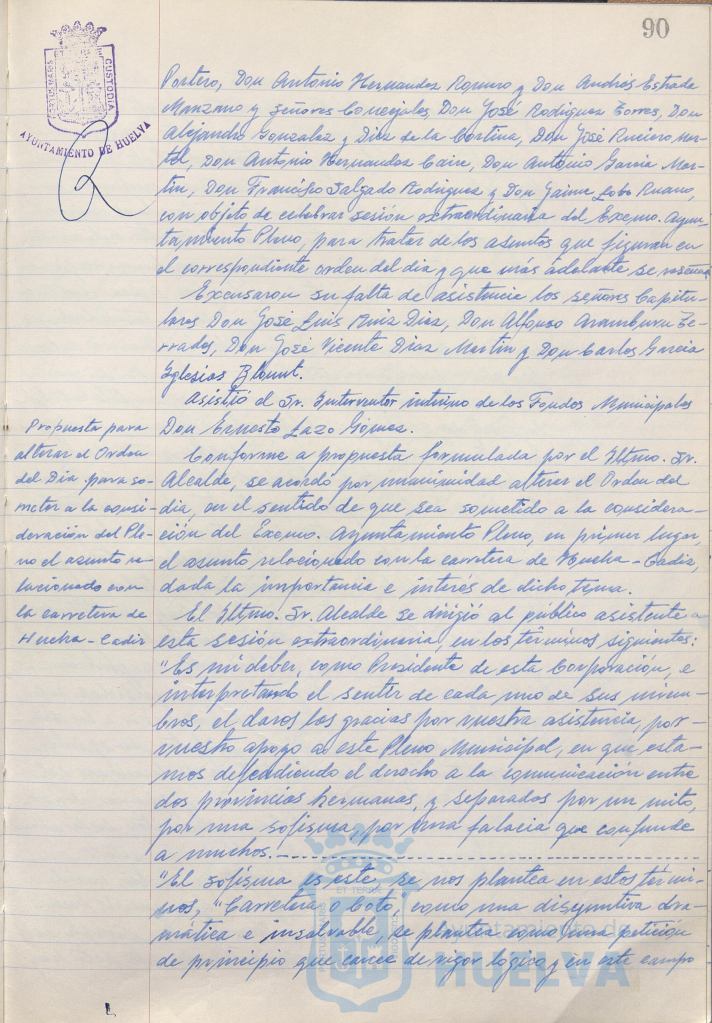 90
PORTUS MARIS
CUSTODIA
AYUNTAMIENTO DE HUELVA
Portero, Don Antonio Hernandez Romero y Don Andrés Estrada
Manzano y señores Concejales, Don José Rodriguez Torres, Don
Alejandro Gonzalez y Diaz de la Cortina, Don José Ruciero Mar-
tel, Don Antonio Hernandez Caire, Don Antonio Garcia Mar-
tin, Don Francisco Salgado Rodriguez y Don Jaime Lobo Ruano,
con objeto de celebrar sesión extraordinaria del Excmo. Ayun-
tamiento Pleno, para tratar de los asuntos que figuran en
el correspondiente orden del dia y que más adelante se reseñan
Excusaron su falta de asistencia los señores Capitu-
lares Don José Luis Ruiz Diaz, Don Alfonso Aramburu Te-
rrades, Don José Vicente Diaz Martin y Don Carlos Garcia
Iglesias Blount.
Asistió el Sr. Interventor interino de los Fondos Municipales
Don Ernesto Lazo Gómez.
Propuesta para
alterar el Orden
del Dia para so-
meter a la consi-
deración del Ple-
no el asunto re-
lacionado con
la carretera de
Huelva-Cadiz
Conforme a propuesta formulada por el Iltmo. Sr.
Alcalde, se acordó por unanimidad alterar el Orden del
dia, en el sentido de que sea sometido a la considera-
ción del Excmo. Ayuntamiento Pleno, en primer lugar,
el asunto relacionado con la carretera de Huelva-Cadiz,
dada la importancia e interés de dicho tema.
El Iltmo. Sr. Alcalde se dirigió al público asistente a
esta sesión extraordinaria, en los términos siguientes:
"Es mi deber, como Presidente de esta Corporación, e
interpretando el sentir de cada uno de sus miem-
bros, el daros las gracias por vuestra asistencia, por
vuestro apoyo a este Pleno Municipal, en que esta-
mos defendiendo el derecho a la comunicación entre
dos provincias hermanas, y separados por un mito,
por una sofisma, por una falacia que confunde
a muchos.-
"El sofisma es este se nos plantea en estos térmi-
nos, "Carretera o Coto," como una disyuntiva dra-
mática e insalvable, se plantea como una petición
de principio que carece de rigor lógico y en este campo
Ayuntamiento de
HUELVA